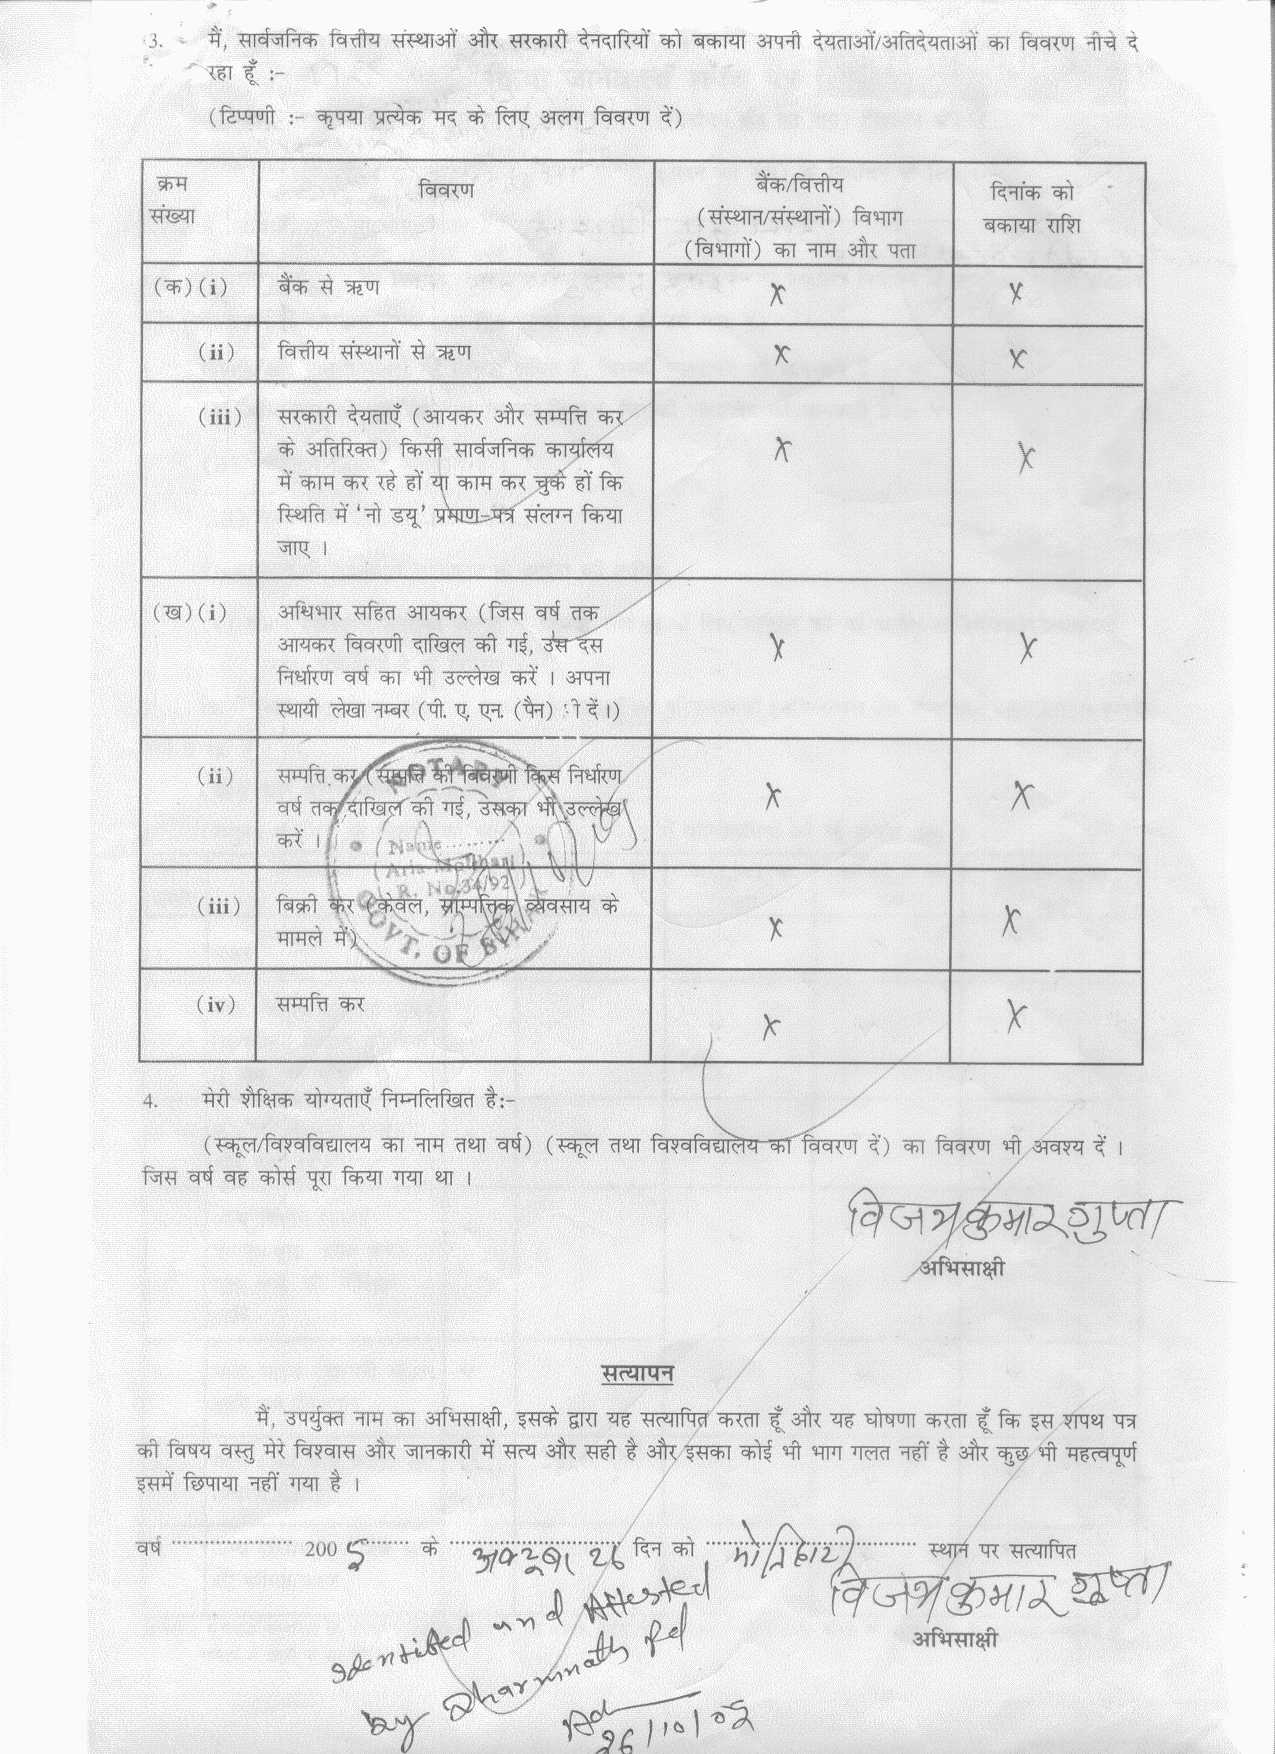 3. मैं, सार्वजनिक वित्तीय संस्थाओं और सरकारी देनदारियों को बकाया अपनी देयताओं/अतिदेयताओं का विवरण नीचे दे
रहा हूँ :-
(टिप्पणी :- कृपया प्रत्येक मद के लिए अलग विवरण दें)
क्रम संख्या
विवरण
बैंक/वित्तीय
(संस्थान/संस्थानों) विभाग
(विभागों) का नाम और पता
दिनांक को
बकाया राशि
(क) (i) बैंक से ऋण X X
(ii) वित्तीय संस्थानों से ऋण X X
(iii) सरकारी देयताएँ (आयकर और सम्पत्ति कर
के अतिरिक्त) किसी सार्वजनिक कार्यालय X X
में काम कर रहे हों या काम कर चुके हों कि
स्थिति में 'नो डयू' प्रमाण-पत्र संलग्न किया
जाए ।
(ख) (i) अधिभार सहित आयकर (जिस वर्ष तक
आयकर विवरणी दाखिल की गई, उस दस X X
निर्धारण वर्ष का भी उल्लेख करें । अपना
स्थायी लेखा नम्बर (पी. ए. एन. (पैन) ी दें।)
(ii) सम्पत्ति कर (सम्पत्ति की विवरणी किस निर्धारण
वर्ष तक दाखिल की गई, उसका भी उल्लेख X X
करें ।
(iii) बिक्री कर (केवल, साम्पत्तिक व्यवसाय के
मामले में) X X
(iv) सम्पत्ति कर X X
NOTARY
(Name.........
R. No.34/92)
GOVT. OF BIHAR
4. मेरी शैक्षिक योग्यताएँ निम्नलिखित है:-
(स्कूल/विश्वविद्यालय का नाम तथा वर्ष) (स्कूल तथा विश्वविद्यालय का विवरण दें) का विवरण भी अवश्य दें ।
जिस वर्ष वह कोर्स पूरा किया गया था ।
विजय कुमार गुप्ता
अभिसाक्षी
सत्यापन
मैं, उपर्युक्त नाम का अभिसाक्षी, इसके द्वारा यह सत्यापित करता हूँ और यह घोषणा करता हूँ कि इस शपथ पत्र
की विषय वस्तु मेरे विश्वास और जानकारी में सत्य और सही है और इसका कोई भी भाग गलत नहीं है और कुछ भी महत्वपूर्ण
इसमें छिपाया नहीं गया है ।
वर्ष .................... 200 5 ........ के अक्टूबर 26 दिन को मोतिहारी स्थान पर सत्यापित
विजय कुमार गुप्ता
अभिसाक्षी
Identified and Attested
by Dharmnath Pd
Ad
26/10/05